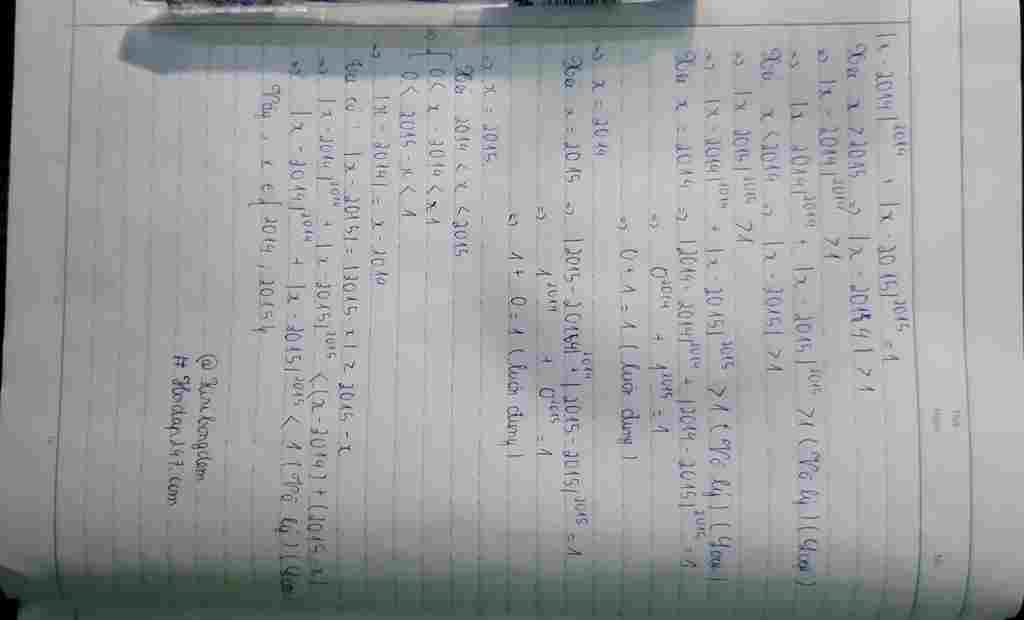 |x - 2014|^2014 + |x - 2015|^2015 = 1
Xét x > 2015 => |x - 2014| > 1
=> |x - 2014|^2014 > 1
=> |x - 2014|^2014 + |x - 2015|^2015 > 1 (Vô lý) (Loại)
Xét x < 2014 => |x - 2015| > 1
=> |x - 2015|^2015 > 1
=> |x - 2014|^2014 + |x - 2015|^2015 > 1 (Vô lý) (Loại)
Xét x = 2014 => |2014 - 2014|^2014 + |2014 - 2015|^2015 = 1
=> 0^2014 + 1^2015 = 1
=> 0 + 1 = 1 (luôn đúng)
=> x = 2014
Xét x = 2015 => |2015 - 2014|^2014 + |2015 - 2015|^2015 = 1
=> 1^2014 + 0^2015 = 1
=> 1 + 0 = 1 (luôn đúng)
=> x = 2015
Xét 2014 < x < 2015
=> { 0 < x - 2014 < 1
0 < 2015 - x < 1
=> |x - 2014| = x - 2014
Ta có: |x - 2015| = |2015 - x| = 2015 - x
=> |x - 2014|^2014 + |x - 2015|^2015 < (x - 2014) + (2015 - x)
=> |x - 2014|^2014 + |x - 2015|^2015 < 1 (Vô lý) (Loại
Vậy x ∈ { 2014, 2015}
# Hoidap247.com